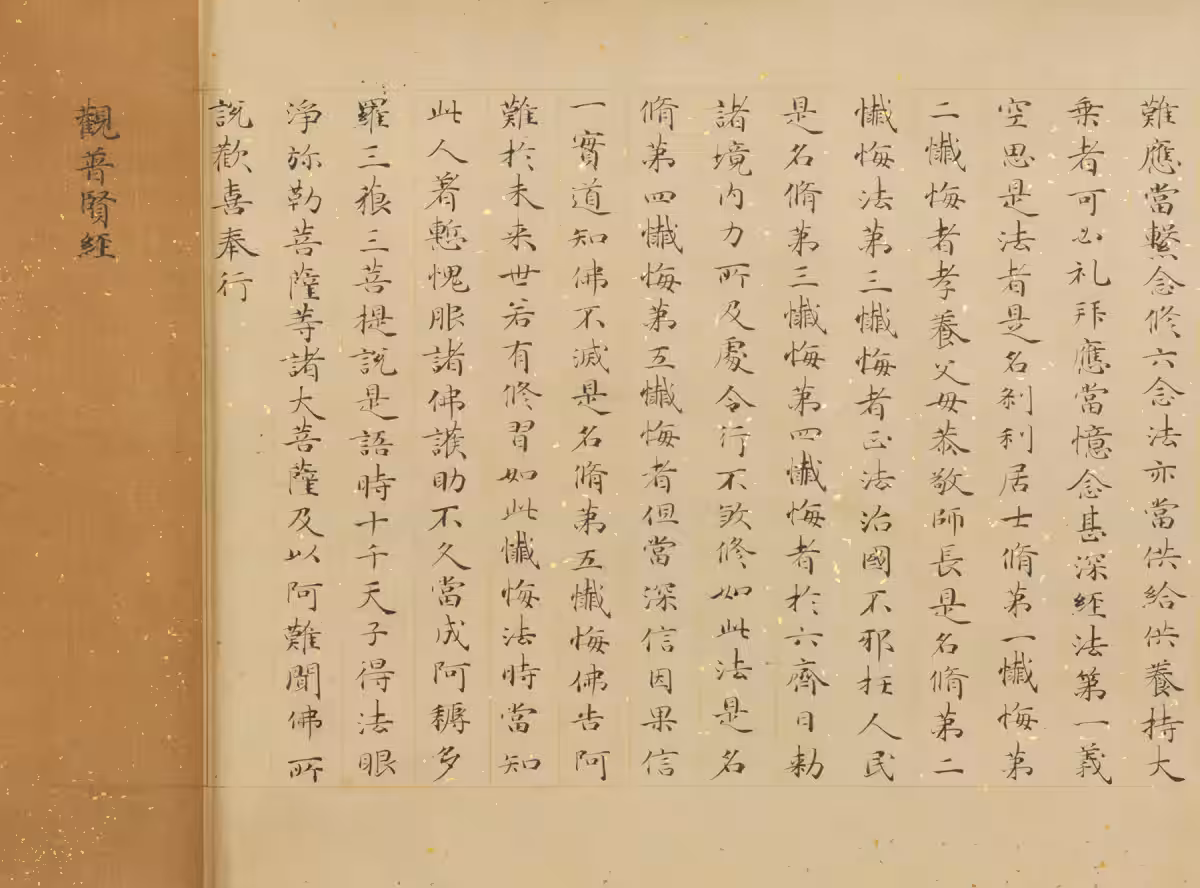 難應當繫念修六念法亦當供給供養持大
乗者可必礼拜應當憶念甚深經法第一義
空思是法者是名剎利居士脩第一懺悔第
二懺悔者孝養父母恭敬師長是名脩第二
懺悔法第三懺悔者正法治國不邪枉人民
是名脩第三懺悔第四懺悔者於六齊日勅
諸境內力所及處令行不煞修如此法是名
脩第四懺悔第五懺悔者但當深信因果信
一實道知佛不滅是名脩第五懺悔佛告阿
難於未来世若有修習如此懺悔法時當知
此人著慙愧服諸佛護助不久當成阿耨多
羅三藐三菩提說是語時十千天子得法眼
淨弥勒菩薩等諸大菩薩及以阿難聞佛所
說歡喜奉行
觀普賢經